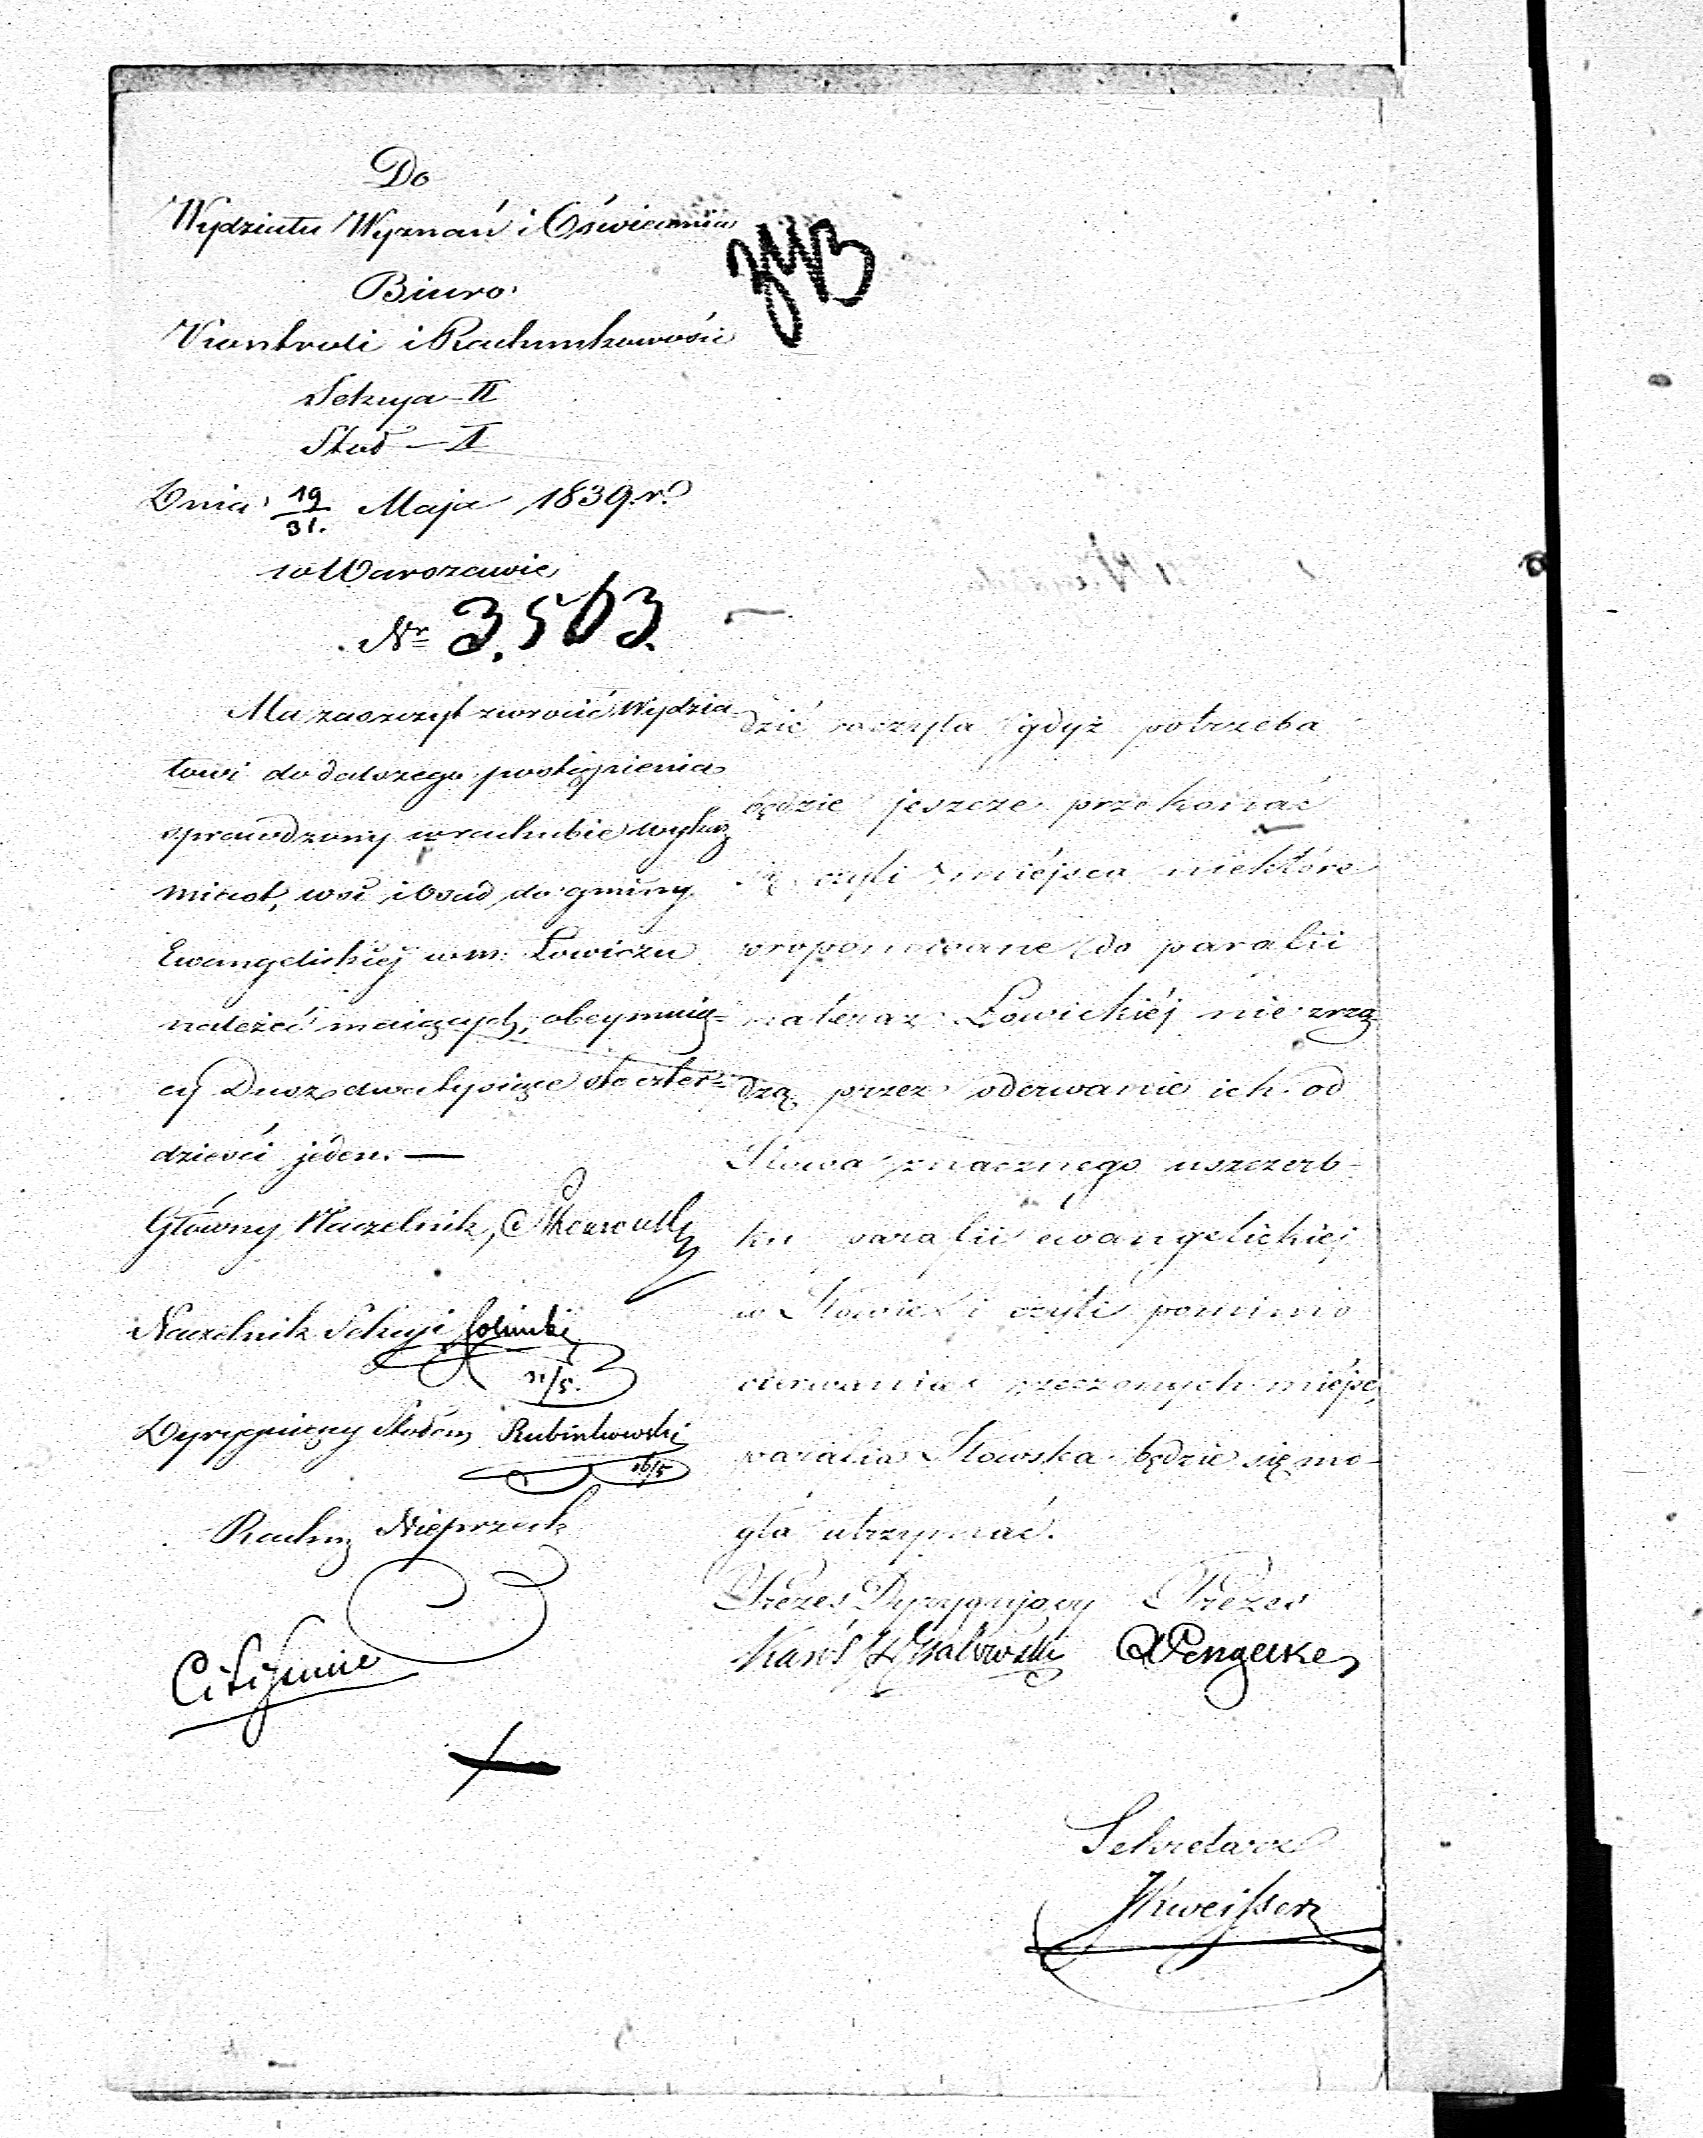 Do
Wydziału Wyznań i Oświecenia
Biuro
Kontroli i Rachunkowości
Sekcya II
Stół — I
Dnia 19/31. Maja 1839 r.
w Warszawie
Nr 3,563.
Ma zaszczyt zwrócić Wydzia-
łowi do dalszego postąpienia
sprawdzony w rachubie wykaz
miast, wsi i osad do gminy
Ewangelickiej w m. Łowiczu
należeć maiących, obeymuią-
cy Dusz dwa tysiące sto czter-
dzieści jeden. —
Główny Naczelnik,
Naczelnik Sekcyi
31/5.
Dyrygujący Stołem Rubinkowski
16/5
Rachm
dzić raczyła gdyż potrzeba
będzie jeszcze przekonać
się czyli miéjsca niektóre
proponowane do parafii
nateraz Łowickiéj nie zrzą-
dzą przez oderwanie ich od
Iłowa znacznego uszczerb-
ku parafii ewangelickiéj
w Iłowie i czyli pomimo
oderwania rzeczonych miejsc,
parafia Iłowska będzie się mo-
gła utrzymać.
Prezes Dyrygujący Prezes
Sekretarz